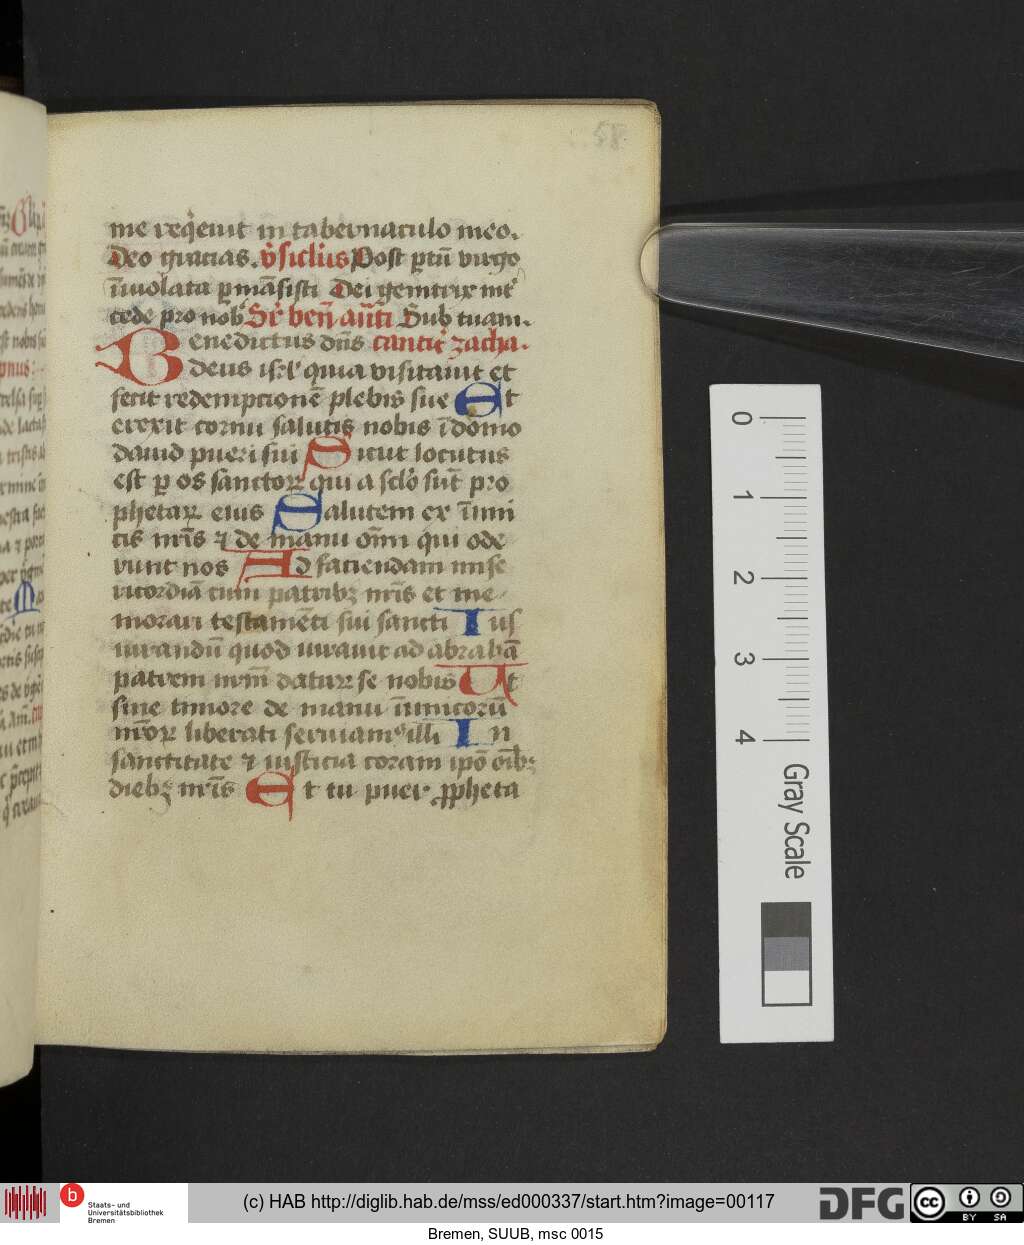 me req̇eiuit in tabernaculo meo.
Deo gracias. v̇siclus Post ptū virgo
īuiolata pmāsisti Dei genitrix int̾
cede pro nob̾ Sr̾ ben̄ anti Sub tuam.
Benedictus dn̄s cantic̾ zacha.
deus isrl̾ quia visitauit et
fecit redempcionē plebis sue Et
erexit cornu salutis nobis ī domo
dauid pueri sui Sicut locutus
est p os sanctoꝝ qui a sclo̾ sūt pro
phetaꝝ eius Salutem ex īimi
cis nrīs ⁊ de manu om̄ qui ode
runt nos Ad faciendam mise
ricordiā cum patribꝫ nrīs et me
morari testamēti sui sancti Ius
iurandū quod iurauit ad abrahā
patrem nrm̄ daturꝝ se nobis Ut
sine timore de manu īimicorū
nrōꝝ liberati seruiam᷒ illi In
sanctitate ⁊ iusticia coram ipō oīb;
diebꝫ nrīs Et tu puer ꝓpheta
0
1
2
3
4
Gray Scale
b
Staats- und
Universitätsbibliothek
Bremen
(c) HAB http://diglib.hab.de/mss/ed000337/start.htm?image=00117
DFG
cc BY SA
Bremen, SUUB, msc 0015